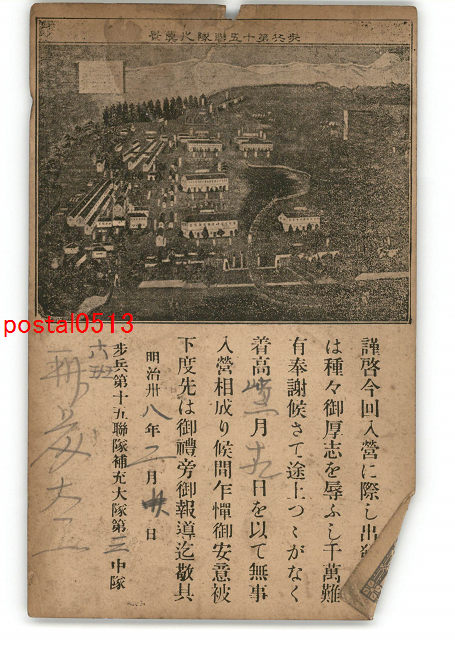 歩兵第十五聯隊之真景
postal0513
謹啓今回入營に際し出發
は種々御厚志を辱ふし千萬難
有奉謝候さて途上つゝがなく
着高 月 日を以て無事
入營相成り候間乍憚御安意被
下度先は御禮旁御報導迄敬具
明治卅八年 二月廿日
歩兵第十五聯隊補充大隊第三中隊
六班